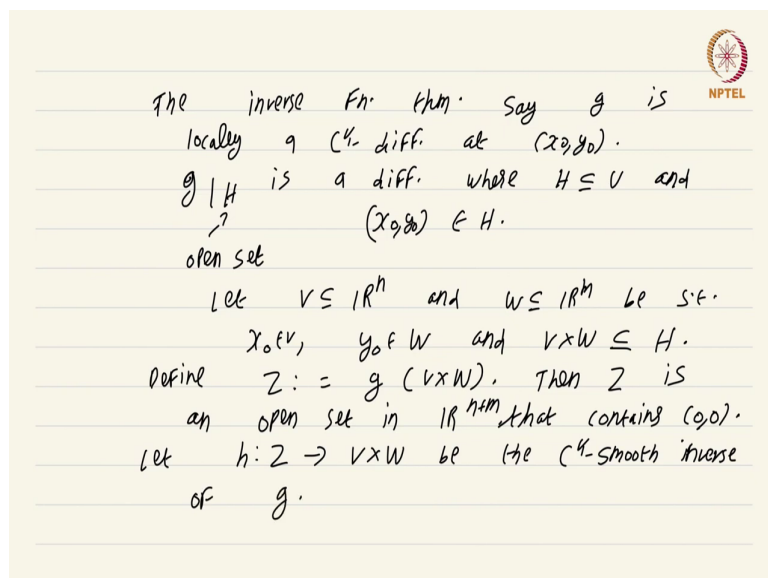 NPTEL
The inverse Fn. thm. Say g is
locally a C^k- diff. at (x0,y0).
g|H is a diff. where H ⊆ U and
(x0,y0) ∈ H.
open set
Let V ⊆ IR^n and W ⊆ IR^m be s.t.
x0 ∈ V, y0 ∈ W and V×W ⊆ H.
Define Z := g (V×W). Then Z is
an open set in IR^n+m that contains (0,0).
Let h: Z → V×W be the C^k-smooth inverse
of g.